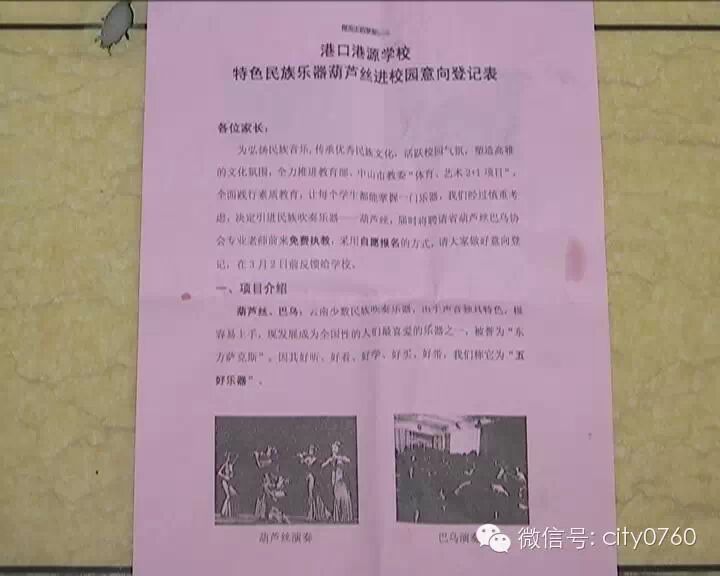 港口港源学校
特色民族乐器葫芦丝进校园意向登记表
各位家长：
为弘扬民族音乐，传承优秀民族文化，活跃校园气氛，塑造高雅
的文化氛围，全力推进教育部、中山市教委“体育、艺术2+1项目”，
全面践行素质教育，让每个学生都能掌握一门乐器，我们经过慎重考
虑，决定引进民族吹奏乐器——葫芦丝，届时将聘请省葫芦丝巴乌协
会专业老师前来免费执教，采用自愿报名的方式，请大家做好意向登
记，在3月2日前反馈给学校。
一、项目介绍
葫芦丝、巴乌：云南少数民族吹奏乐器，由于声音独具特色，极
容易上手，现发展成为全国性的人们最喜爱的乐器之一，被誉为“东
方萨克斯”。因其好听、好看、好学、好买、好带，我们称它为“五
好乐器”。
葫芦丝演奏
巴乌演奏
微信号: city0760